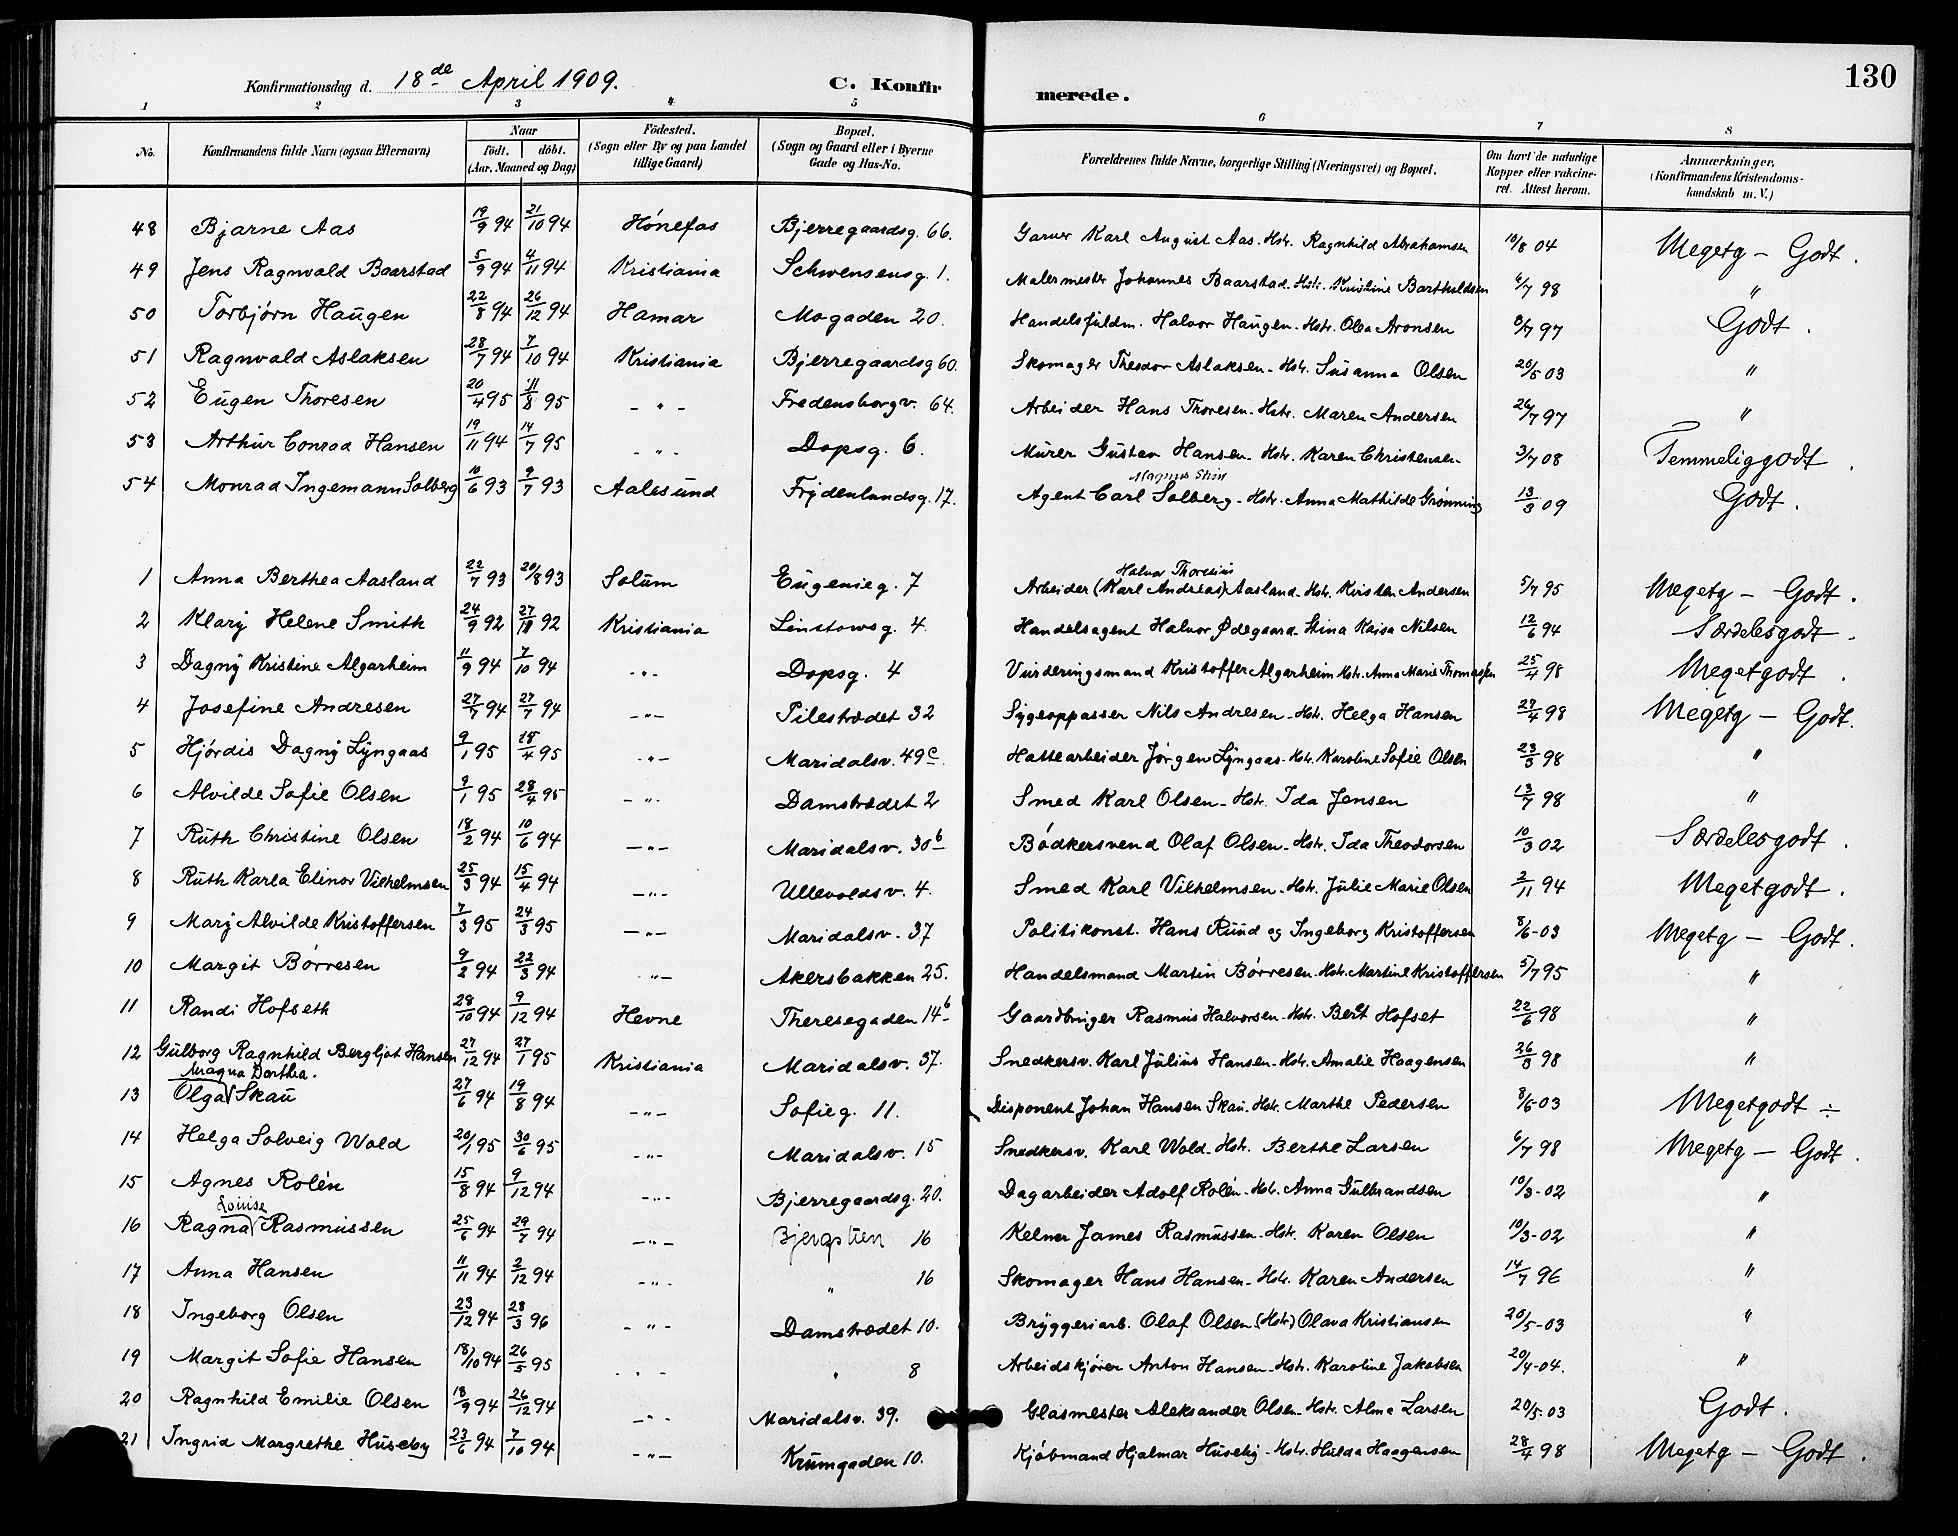 130
Konfirmationsdag d. 18de April 1909. C. Konfirmerede.
1 2 3 4 5 6 7 8
No. Konfirmandens fulde Navn (ogsaa Efternavn) Naar født. døbt. (Aar, Maaned og Dag) Fødested. (Sogn eller By og paa Landet tillige Gaard) Bopæl. (Sogn og Gaard eller i Byerne Gade og Hus-No. Forældrenes fulde Navne, borgerlige Stilling (Næringsvei) og Bopæl. Om havt de naturlige Kopper eller vakcineret. Attest herom. Anmærkninger. (Konfirmandens Kristendomskundskab m. V.)
48 Bjarne Aas 19/9 94 21/10 94 Hønefos Bjerregaardsg. 66. Garver Karl August Aas. Hstr. Ragnhild Abrahamsen 10/8 04 Megetg - Godt.
49 Jens Ragnvald Baarstad 5/9 94 4/11 94 Kristiania Schwensensg. 1. Malermester Johannes Baarstad. Hstr. Kristine Bartholdsen 6/7 98 "
50 Torbjørn Haugen 22/8 94 26/12 94 Hamar Mogaden 20. Handelsfuldm. Halvor Haugen. Hstr. Olea Aronsen 8/7 97 Godt.
51 Ragnvald Aslaksen 28/7 94 7/10 94 Kristiania Bjerregaardsg 60. Skomager Theodor Aslaksen - Hstr. Susanna Olsen 20/5 03 "
52 Eugen Thoresen 20/4 95 11/8 95 - " - Fredensborgv. 64. Arbeider Hans Thoresen. Hstr. Maren Andersen 26/7 97 "
53 Arthur Conrad Hansen 19/11 94 14/7 95 - " - Dopsg. 6. Murer Gustav Hansen. Hstr. Karen Christensen 3/7 08 Temmeliggodt.
54 Monrad Ingemann Solberg 10/6 93 9/7 93 Aalesund Frydenlundsg. 17. Agent Carl Solberg - Hstr. Anna Mathilde Grønning 13/3 09 Godt.
1 Anna Berthea Aasland 22/7 93 20/8 93 Solum Eugenieg. 7 Halvor Thoresius
Arbeider (Karl Andreas) Aasland. Hstr. Kirsten Andersen 5/7 95 Megetg - Godt.
2 Klary Helene Smith 24/9 92 27/11 92 Kristiania Linstowsg. 4. Handelsagent Halvor Ødegaard. Stina Kaisa Nilsen 12/6 94 Særdelesgodt.
3 Dagny Kristine Algarheim 11/9 94 7/10 94 - " - Dopsg. 4 Vurderingsmand Kristoffer Algarheim Hstr. Anna Marie Thomassen 25/4 98 Megetgodt.
4 Josefine Andresen 27/7 94 27/7 94 - " - Pilestrædet 32 Sygeoppasser Nils Andresen. Hstr. Helga Hansen 27/4 98 Megetg - Godt.
5 Hjørdis Dagny Lyngaas 9/1 95 15/4 95 - " - Maridalsv. 49c. Hattearbeider Jørgen Lyngaas. Hstr. Karoline Sofie Olsen 23/5 98 "
6 Alvilde Sofie Olsen 9/1 95 28/4 95 - " - Damstrædet 2 Smed Karl Olsen - Hstr. Ida Jensen 13/7 98 "
7 Ruth Christine Olsen 18/2 94 10/6 94 - " - Maridalsv. 30b Bødkersvend Olaf Olsen. Hstr. Ida Theodorsen 10/3 02 Særdelesgodt.
8 Ruth Karla Elinor Vilhelmsen 25/3 94 15/4 94 - " - Ullevoldsv. 4. Smed Karl Vilhelmsen. Hstr. Julie Marie Olsen 2/11 94 Megetgodt.
9 Mary Alvilde Kristoffersen 7/3 95 24/3 95 - " - Maridalsv. 37 Politikonst. Hans Ruud og Ingeborg Kristoffersen 8/6-03 Megetg - Godt.
10 Margit Børresen 9/2 94 22/3 94 - " - Akersbakken 25. Handelsmand Martin Børresen. Hstr. Martine Kristoffersen 5/7 95 "
11 Randi Hofseth 28/10 94 9/12 94 Hevne Theresegaden 14b Gaardbruger Rasmus Halvorsen. Hstr. Berit Hofset 22/6 98 "
12 Gulborg Ragnhild Bergljot Hansen 27/12 94 27/1 95 Kristiania Maridalsv. 37. Snedkersv. Karl Julius Hansen. Hstr. Amalie Haagensen 26/3 98 "
Magna Dorthea.
13 Olga Skau 27/6 94 19/8 94 - " - Sofieg. 11. Disponent Johan Hansen Skau. Hstr. Marthe Pedersen 8/6-03 Megetgodt ÷
14 Helga Solveig Wold 20/1 95 30/6 95 - " - Maridalsv. 15 Snedkersv. Karl Wold. Hstr. Berthe Larsen 6/7 98 Megetg - Godt.
15 Agnes Rolén 15/8 94 9/12 94 - " - Bjerregaardsg. 20. Dagarbeider Adolf Rolén. Hstr. Anna Gulbrandsen 10/3-02 "
Louise
16 Ragna Rasmussen 25/6 94 29/7 94 - " - Bjergstien 16 Kelner James Rasmussen. Hstr. Karen Olsen 10/3-02 "
17 Anna Hansen 11/11 94 2/12 94 - " - " 16 Skomager Hans Hansen. Hstr. Karen Andersen 14/7 96 "
18 Ingeborg Olsen 23/12 94 28/3 96 - " - Damstrædet 10. Bryggeriarb. Olaf Olsen (Hstr) Olava Kristiansen 20/5-03 "
19 Margit Sofie Hansen 18/10 94 26/5 95 - " - " 8 Arbeidskjører Anton Hansen. Hstr. Karoline Jakobsen 20/4-04. "
20 Ragnhild Emilie Olsen 18/9 94 26/12 94 - " - Maridalsv. 39. Glasmester Aleksander Olsen. Hstr. Alma Larsen 20/5-03 Godt.
21 Ingrid Margrethe Huseby 23/6 94 7/10 94 - " - Krumgaden 10. Kjøbmand Hjalmar Huseby. Hstr. Hulda Haagensen 28/4 98 Megetg - Godt.